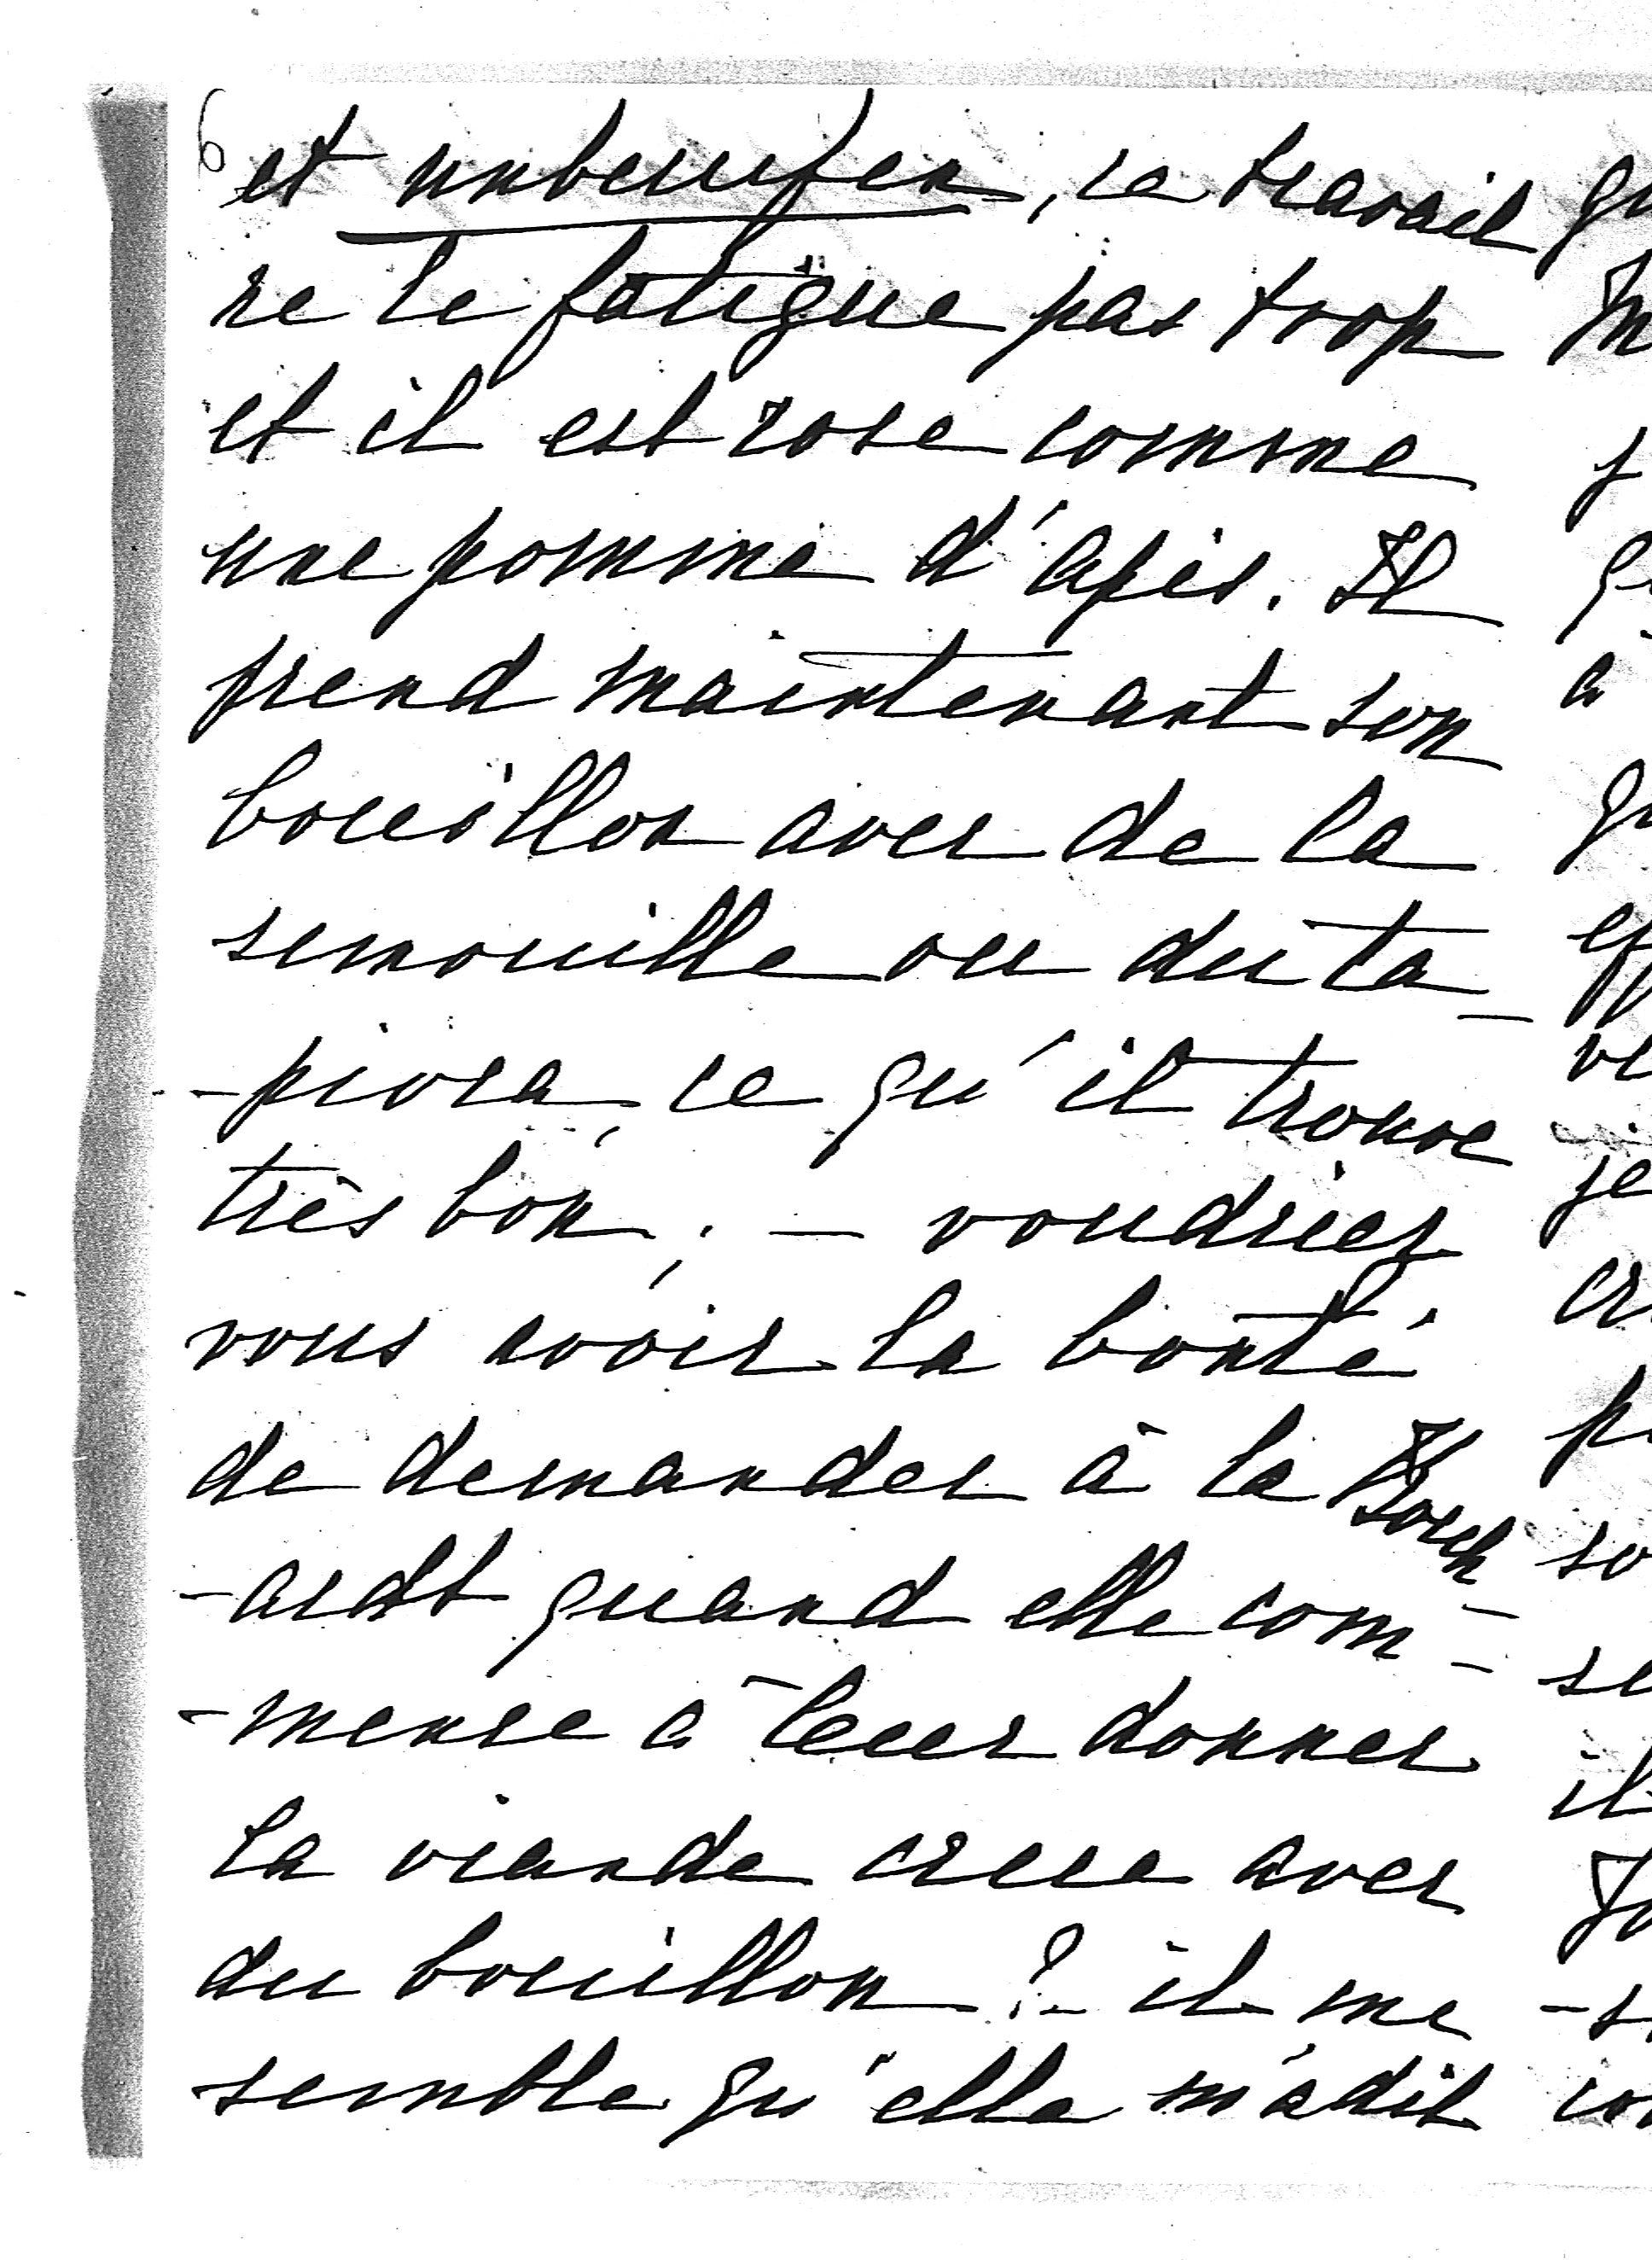 6
et unberufen, ce travail
ne le fatigue pas trop
et il est rose comme
une pomme d'Apis. Il
prend maintenant son
bouillon avec de la
semouille ou du ta-
-pioca, ce qu'il trouve
très bon; - voudriez
vous avoir la bonté
de demander à la Borch-
-ardt quand elle com-
-mence à leur donner
la viande crue avec
du bouillon? - il me
semble qu'elle m'a dit